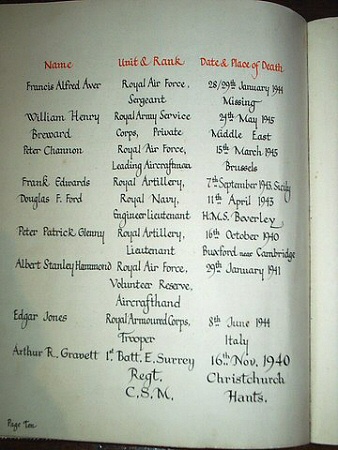 Name Unit & Rank Date & Place of Death
Francis Alfred Aver Royal Air Force, 28/29th January 1944
Sergeant Missing
William Henry Royal Army Service 29th May 1945
Breward Corps, Private Middle East
Peter Channon Royal Air Force, 15th March 1945
Leading Aircraftman Brussels
Frank Edwards Royal Artillery, 7th September 1943. Sicily
Douglas F. Ford Royal Navy, 11th April 1943
Engineer Lieutenant H.M.S. Beverley
Peter Patrick Glenny Royal Artillery, 16th October 1940
Lieutenant Buxford near Cambridge
Albert Stanley Hammond Royal Air Force, 29th January 1941
Volunteer Reserve,
Aircrafthand
Edgar Jones Royal Armound Corps, 8th June 1944
Trooper Italy
Arthur R. Gravett 1st Batt. E. Surrey 16th Nov. 1940
Regt. Christchurch
C.S.M. Hants.
Page Ten